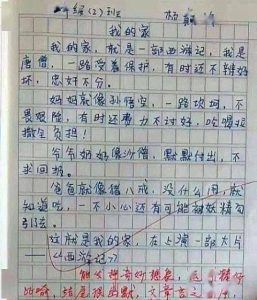 编(2)班 杨
我的家
我的家，就是一部西游记，我是
唐僧，一路受着保护，有时还不辨好
坏，忠奸不分。
妈妈就像孙悟空，一路坎坷，不
畏艰险，有时还费力不讨好，吃喝拉
撒全负担！
爷爷奶奶像沙僧，默默付出，不
求回报。
爸爸就像猪八戒，没什么用，就
知道吃，一不小心还有可能被妖精勾
引去。
这就是我的家，在上演一部大片
——《西游记》
想象，
比喻，结尾很幽默，文章言